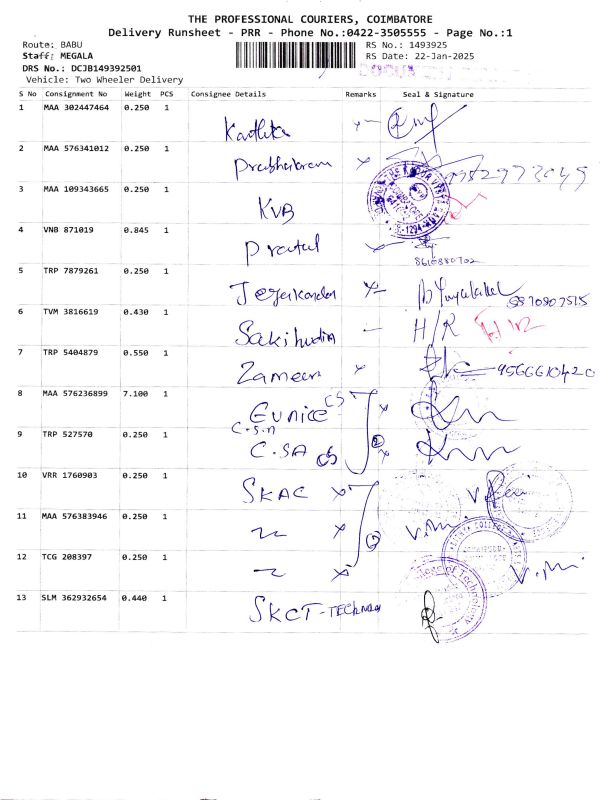 THE PROFESSIONAL COURIERS, COIMBATORE
Delivery Runsheet - PRR - Phone No.:0422-3505555 - Page No.:1
Route: BABU
RS No.: 1493925
Staff: MEGALA
RS Date: 22-Jan-2025
DRS No.: DCJB149392501
Vehicle: Two Wheeler Delivery
S No Consignment No Weight PCS Consignee Details Remarks Seal & Signature
1 MAA 302447464 0.250 1
2 MAA 576341012 0.250 1 Prabhakaran
3 MAA 109343665 0.250 1 KVB
4 VNB 871019 0.845 1
8616880702
5 TRP 7879261 0.250 1
6 TVM 3816619 0.430 1 H/R
7 TRP 5404879 0.550 1 Zameer
8 MAA 576236899 7.100 1 Eunice CS
C.S.A
9 TRP 527570 0.250 1 C.SA CS
10 VRR 1760903 0.250 1 SKAC
11 MAA 576383946 0.250 1
12 TCG 208397 0.250 1
13 SLM 362932654 0.440 1 SKCT-TECHNOLOGY